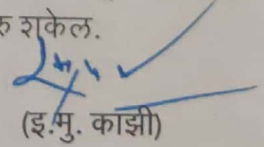 रु शकेल.
(इ.मु. काझी)